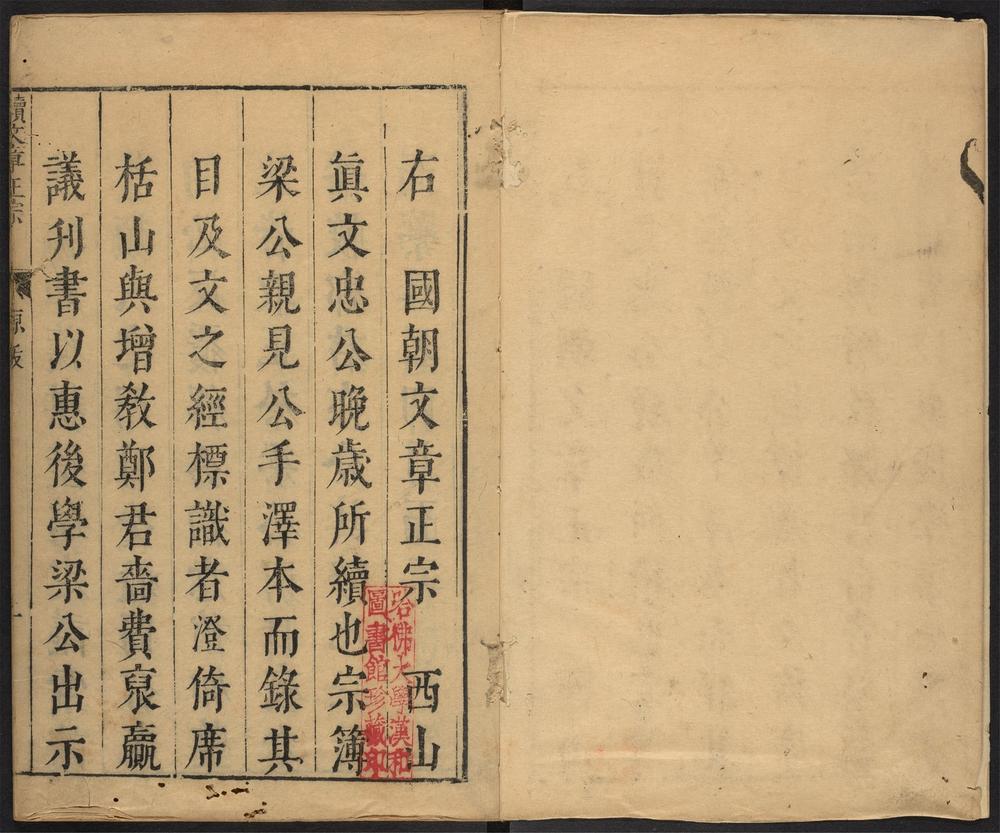 右　國朝文章正宗　西山
眞文忠公晚歳所續也宗簿
梁公親見公手澤本而錄其
目及文之經標識者澄倚席
栝山與增敎鄭君嗇費裒羸
議刋書以惠後學梁公出示
續文章正宗
一
哈佛大學漢和
圖書館珍藏印